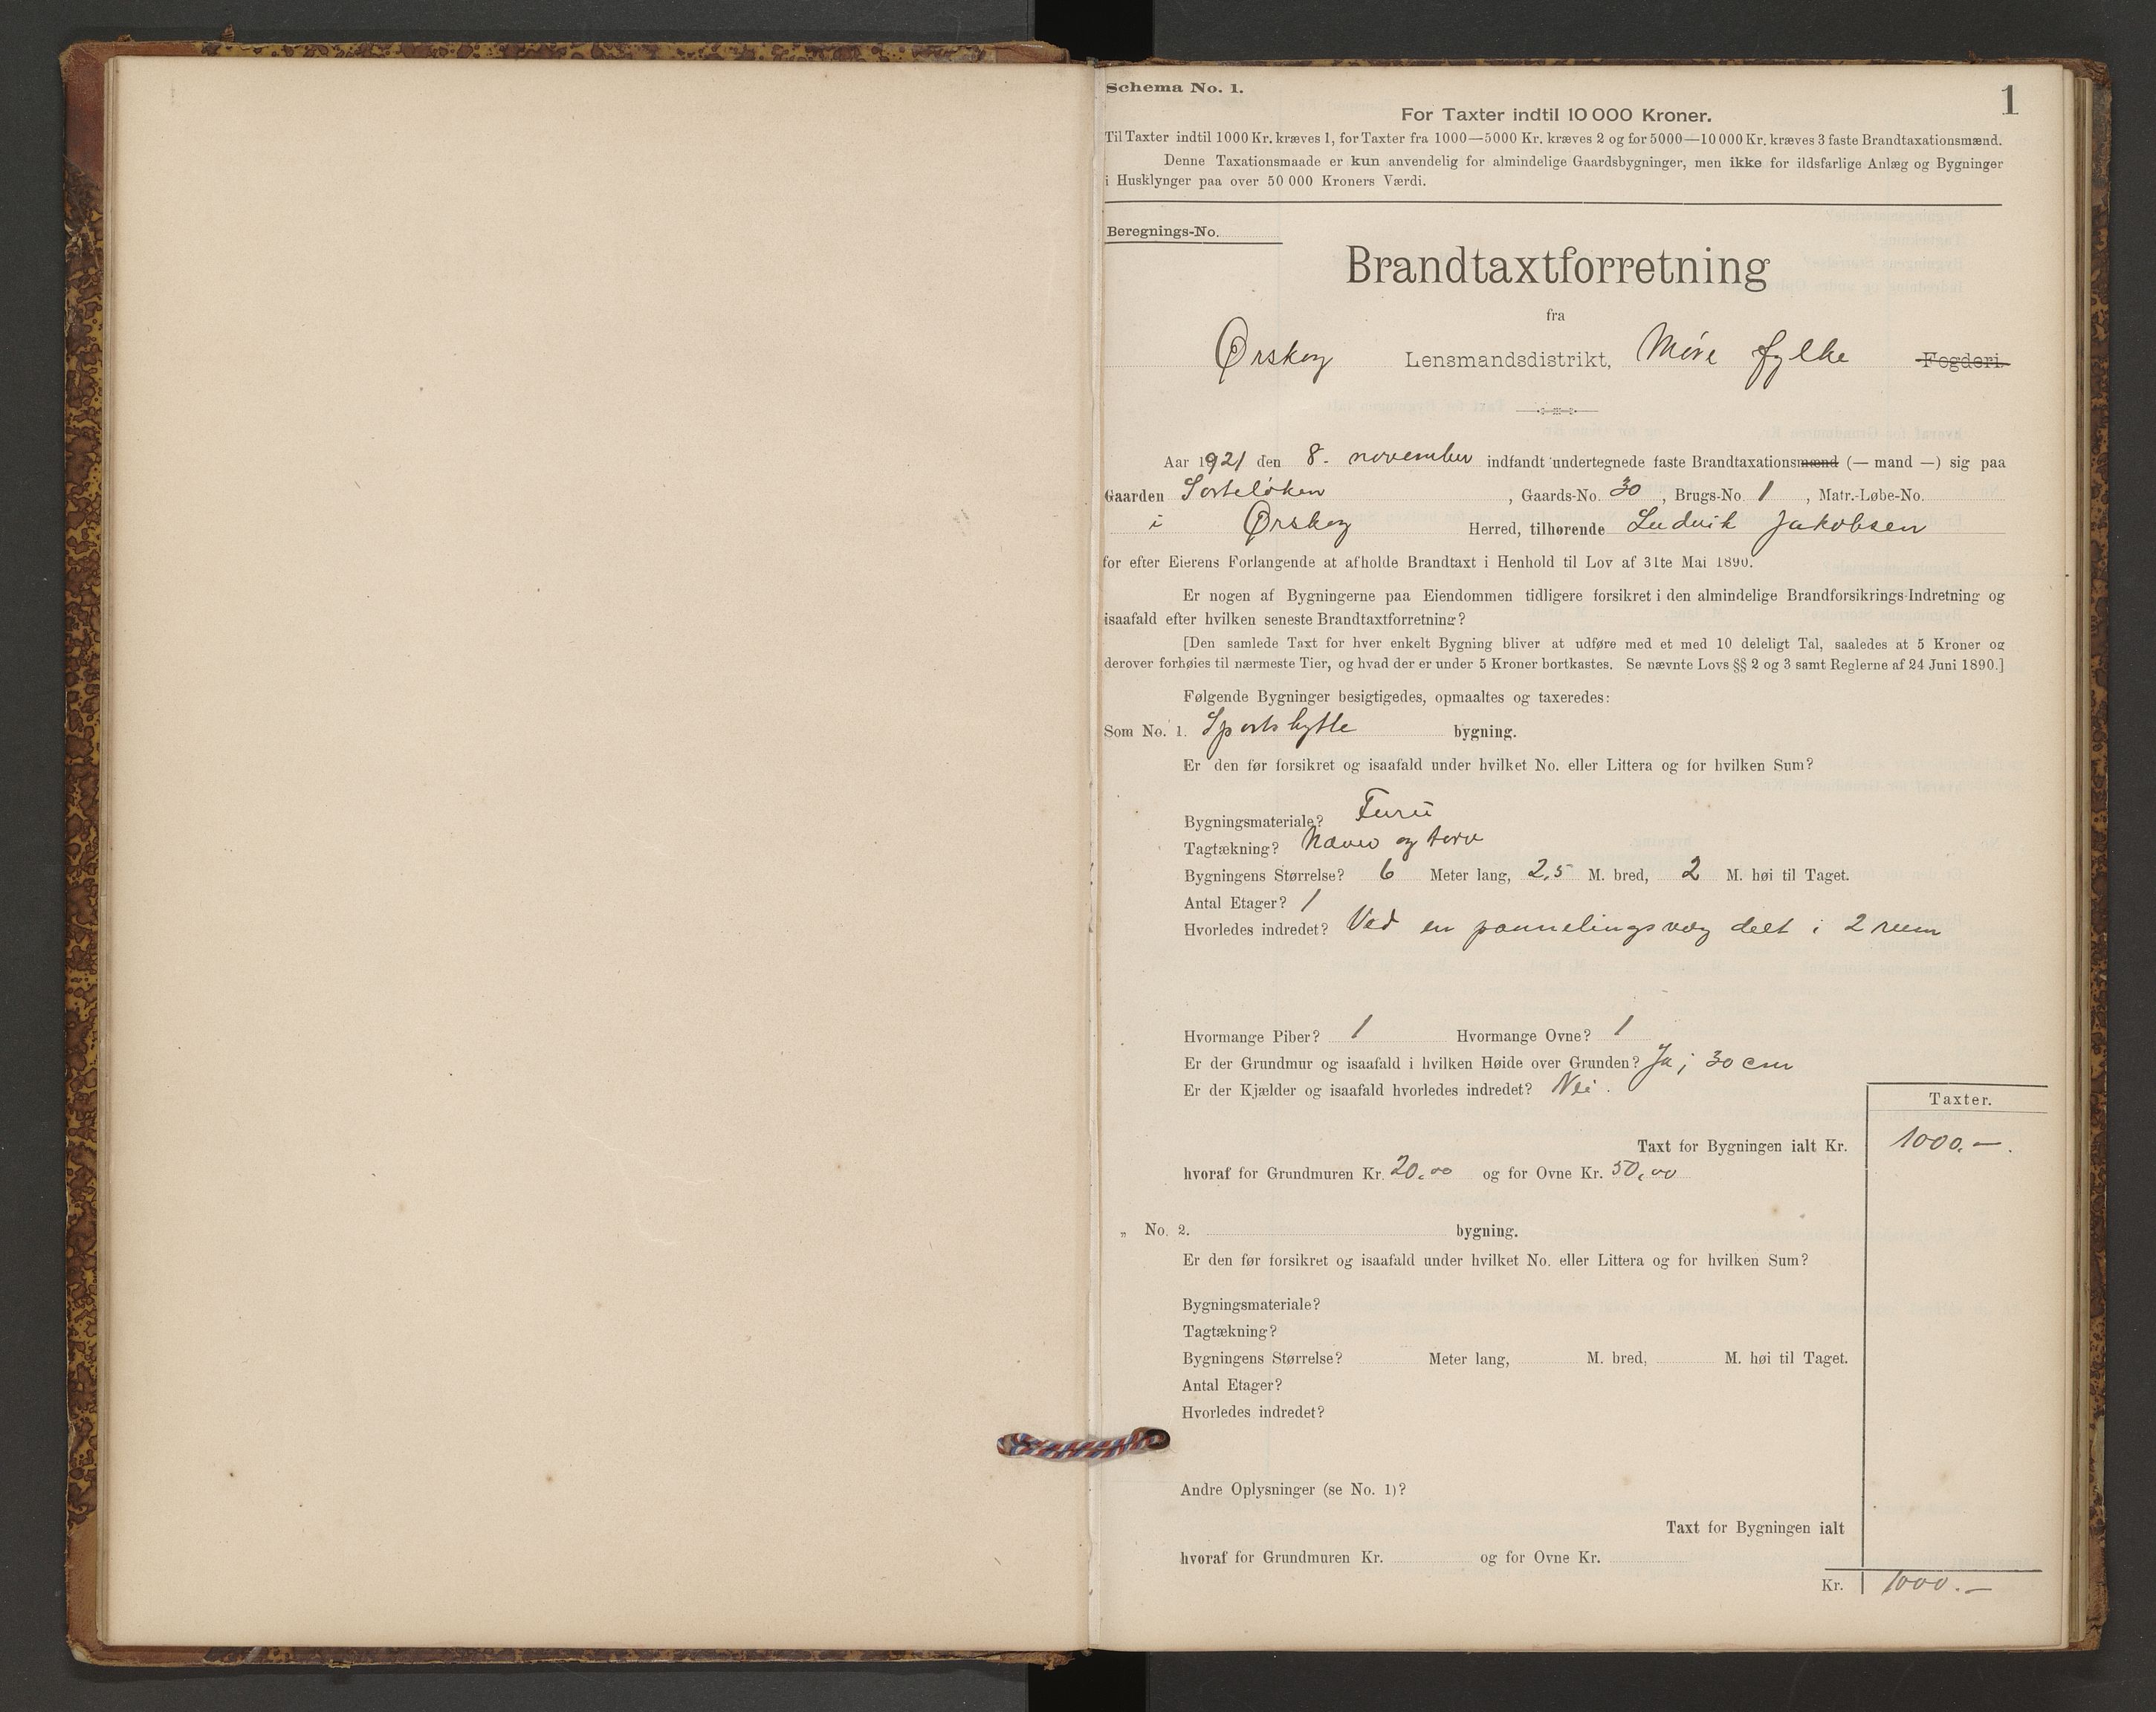 Schema No. 1.
1
For Taxter indtil 10 000 Kroner.
Til Taxter indtil 1000 Kr. kræves 1, for Taxter fra 1000—5000 Kr. kræves 2 og for 5000—10 000 Kr. kræves 3 faste Brandtaxationsmænd.
Denne Taxationsmaade er kun anvendelig for almindelige Gaardsbygninger, men ikke for ildsfarlige Anlæg og Bygninger
i Husklynger paa over 50 000 Kroners Værdi.
Beregnings-No.
Brandtaxtforretning
fra
Ørskog Lensmandsdistrikt, Møre fylke Fogderi.
Aar 1921 den 8. november indfandt undertegnede faste Brandtaxationsmænd (— mand —) sig paa
Gaarden Sorteløken, Gaards-No. 30, Brugs-No. 1, Matr.-Løbe-No.
i Ørskog Herred, tilhørende Ludvik Jakobsen
for efter Eierens Forlangende at afholde Brandtaxt i Henhold til Lov af 31te Mai 1890.
Er nogen af Bygningerne paa Eiendommen tidligere forsikret i den almindelige Brandforsikrings-Indretning og
isaafald efter hvilken seneste Brandtaxtforretning?
[Den samlede Taxt for hver enkelt Bygning bliver at udføre med et med 10 deleligt Tal, saaledes at 5 Kroner og
derover forhøies til nærmeste Tier, og hvad der er under 5 Kroner bortkastes. Se nævnte Lovs §§ 2 og 3 samt Reglerne af 24 Juni 1890.]
Følgende Bygninger besigtigedes, opmaaltes og taxeredes:
Som No. 1. Sportshytte bygning.
Er den før forsikret og isaafald under hvilket No. eller Littera og for hvilken Sum?
Bygningsmateriale? Furu
Tagtækning? Næver og torv
Bygningens Størrelse? 6 Meter lang, 2,5 M. bred, 2 M. høi til Taget.
Antal Etager? 1
Hvorledes indredet? Ved en pannelingsvæg delt i 2 rum
Hvormange Piber? 1 Hvormange Ovne? 1
Er der Grundmur og isaafald i hvilken Høide over Grunden? Ja; 30 cm
Er der Kjælder og isaafald hvorledes indredet? Nei.
Taxter.
Taxt for Bygningen ialt Kr. 1000.—.
hvoraf for Grundmuren Kr. 20,00 og for Ovne Kr. 50,00
„ No. 2. bygning.
Er den før forsikret og isaafald under hvilket No. eller Littera og for hvilken Sum?
Bygningsmateriale?
Tagtækning?
Bygningens Størrelse? Meter lang, M. bred, M. høi til Taget.
Antal Etager?
Hvorledes indredet?
Andre Oplysninger (se No. 1)?
Taxt for Bygningen ialt
hvoraf for Grundmuren Kr. og for Ovne Kr.
Kr. 1000.—